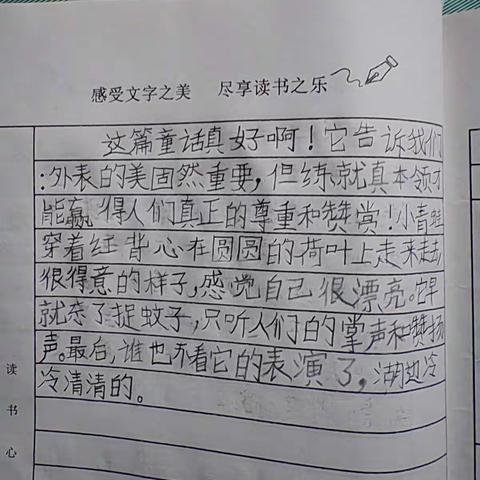 感受文字之美 尽享读书之乐
这篇童话真好啊！它告诉我们
：外表的美固然重要，但练就真本领才
能赢得人们真正的尊重和赞赏！小青蛙
穿着红背心在圆圆的荷叶上走来走去
很得意的样子，感觉自己很漂亮。它早
就忘了捉蚊子，只听人们的掌声和赞扬
声。最后，谁也不看它的表演了，湖边冷
冷清清的。
读书心